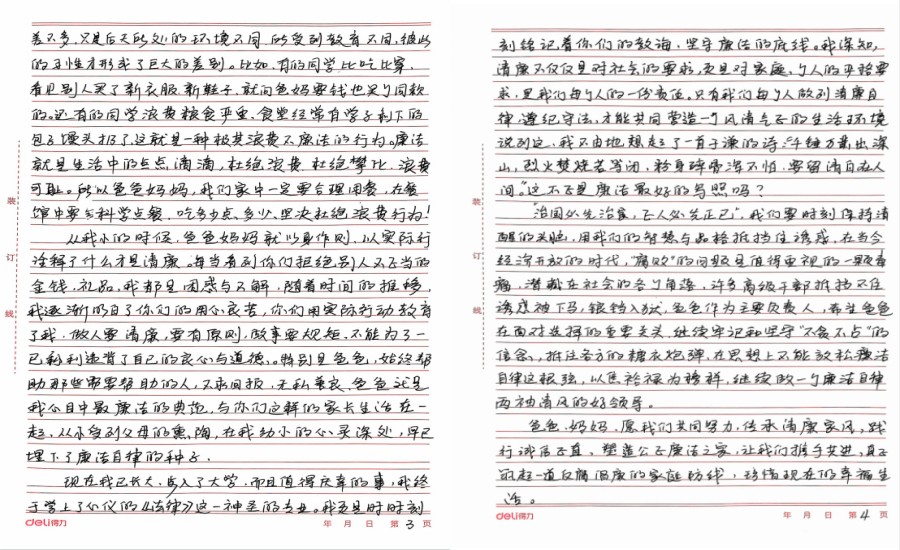 差不多,只是后天所处的环境不同,所受到教育不同,彼此
的习性才形成了巨大的差别。比如,有的同学比吃比穿,
看见别人买了新衣服、新鞋子,就问爸妈要钱也买个同款
的。还有的同学浪费粮食严重,食堂经常有学子剩下的
包子馒头扔了,这就是一种极其浪费不廉洁的行为。廉洁
就是生活中的点点滴滴,杜绝浪费、杜绝攀比,浪费
可耻。所以爸爸妈妈,我们家中一定要合理用餐,在餐
馆中要科学点餐,吃多少点多少,坚决杜绝浪费行为!
从我小的时候,爸爸妈妈就以身作则,以实际行
诠释了什么才是清廉。每当看到你们拒绝别人不正当的
金钱、礼品,我都是困惑与不解,随着时间的推移,
我逐渐明白了你们的用心良苦,你们用实际行动教育
了我,做人要清廉,要有原则,做事要规矩,不能为了一
己私利违背了自己的良心与道德。特别是爸爸,始终帮
助那些需要帮助的人,不求回报,无私奉献,爸爸就是
我心目中最廉洁的典范,与你们这样的家长生活在一
起,从小受到父母的熏陶,在我幼小的心灵深处,早已
埋下了廉洁自律的种子。
现在我已长大,步入了大学,而且值得庆幸的事,我终
于学上了心仪的《法律》这一神圣的专业。我更是时时刻
deli得力
年 月 日 第 3 页
装
订
线
刻铭记着你们的教诲,坚守廉洁的底线。我深知,
清廉不仅仅是对社会的要求,更是对家庭、个人的严格要
求,是我们每个人的一份责任。只有我们每个人做到清廉自
律,遵纪守法,才能共同营造一个风清气正的生活环境
说到这,我不由地想起了一首于谦的诗:"千锤万凿出深
山,烈火焚烧若等闲,粉身碎骨浑不怕,要留清白在人
间。"这不正是廉洁最好的写照吗?
"治国必先治家,正人必先正己",我们要时刻保持清
醒的头脑,用我们的智慧与品格抵挡住诱惑,在当今
经济开放的时代,"腐败"的问题是值得重视的一颗毒
瘤,潜藏在社会的各个角落,许多高级干部抵挡不住
诱惑被下马,锒铛入狱,爸爸作为主要负责人,希望爸爸
在面对选择的重要关头,继续牢记和坚守"不贪不占"的
信念,抵住各方的糖衣炮弹,在思想上不能放松廉洁
自律这根弦,以焦裕禄为榜样,继续做一个廉洁自律
两袖清风的好领导。
爸爸、妈妈,愿我们共同努力,传承清廉家风,践
行诚信正直,塑造公正廉洁之家,让我们携手共进,真正
筑起一道反腐倡廉的家庭防线,珍惜现在的幸福生
活。
deli得力
年 月 日 第 4 页
装
订
线